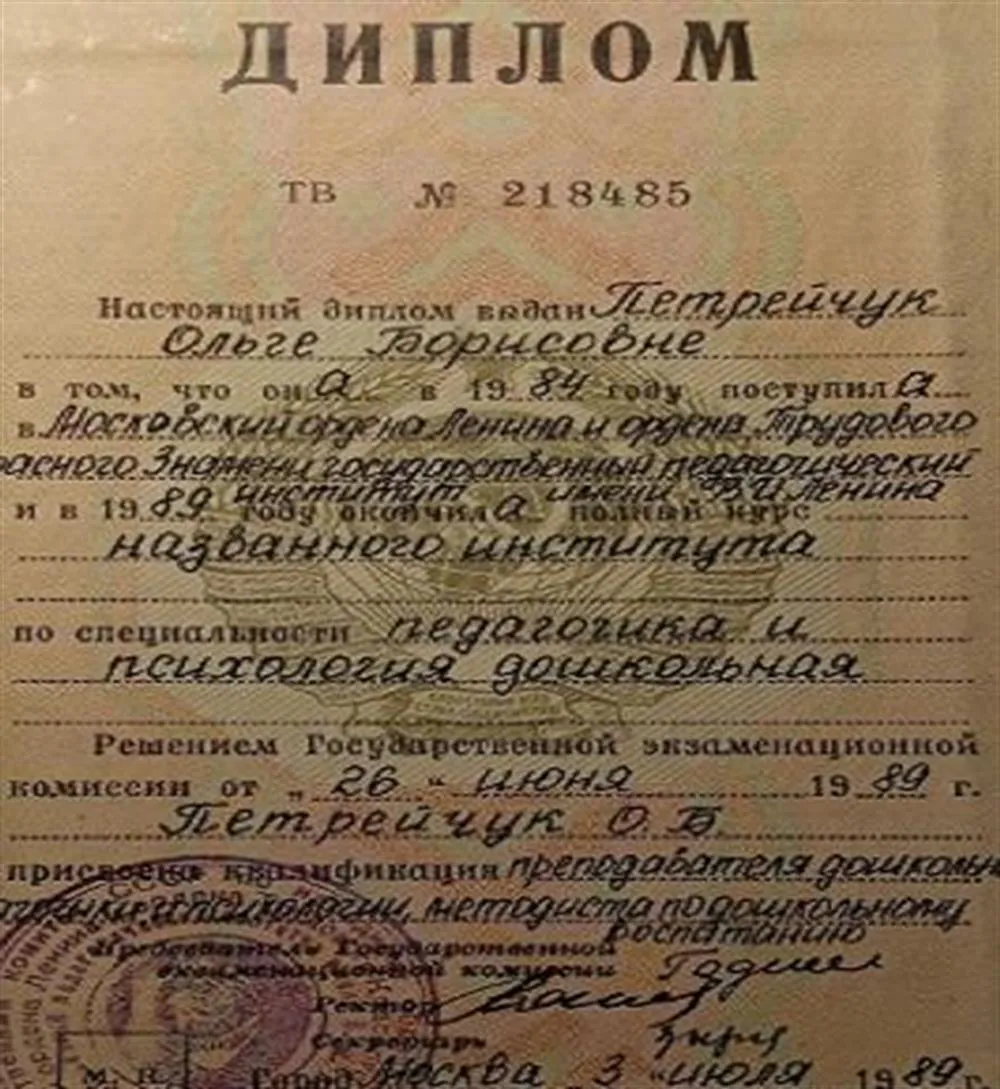 ДИПЛОМ
ТВ № 218485
Настоящий диплом выдан Петрейчук
Ольге Борисовне
в том, что она в 1984 году поступила
в Московский ордена Ленина и ордена Трудового
расного Знамени государственный педагогический
институт имени В.И Ленина
и в 1989 году окончила полный курс
названного института
по специальности педагогика и
психология дошкольная
Решением Государственной экзаменационной
комиссии от „26" июня 1989 г.
Петрейчук О.Б.
присвоена квалификация преподавателя дошкольн
и психологии, методиста по дошкольному
воспитанию
Председатель Государственной
экзаменационной комиссии
Ректор
Секретарь
М. П. Город Москва 3 июля 1989 г.